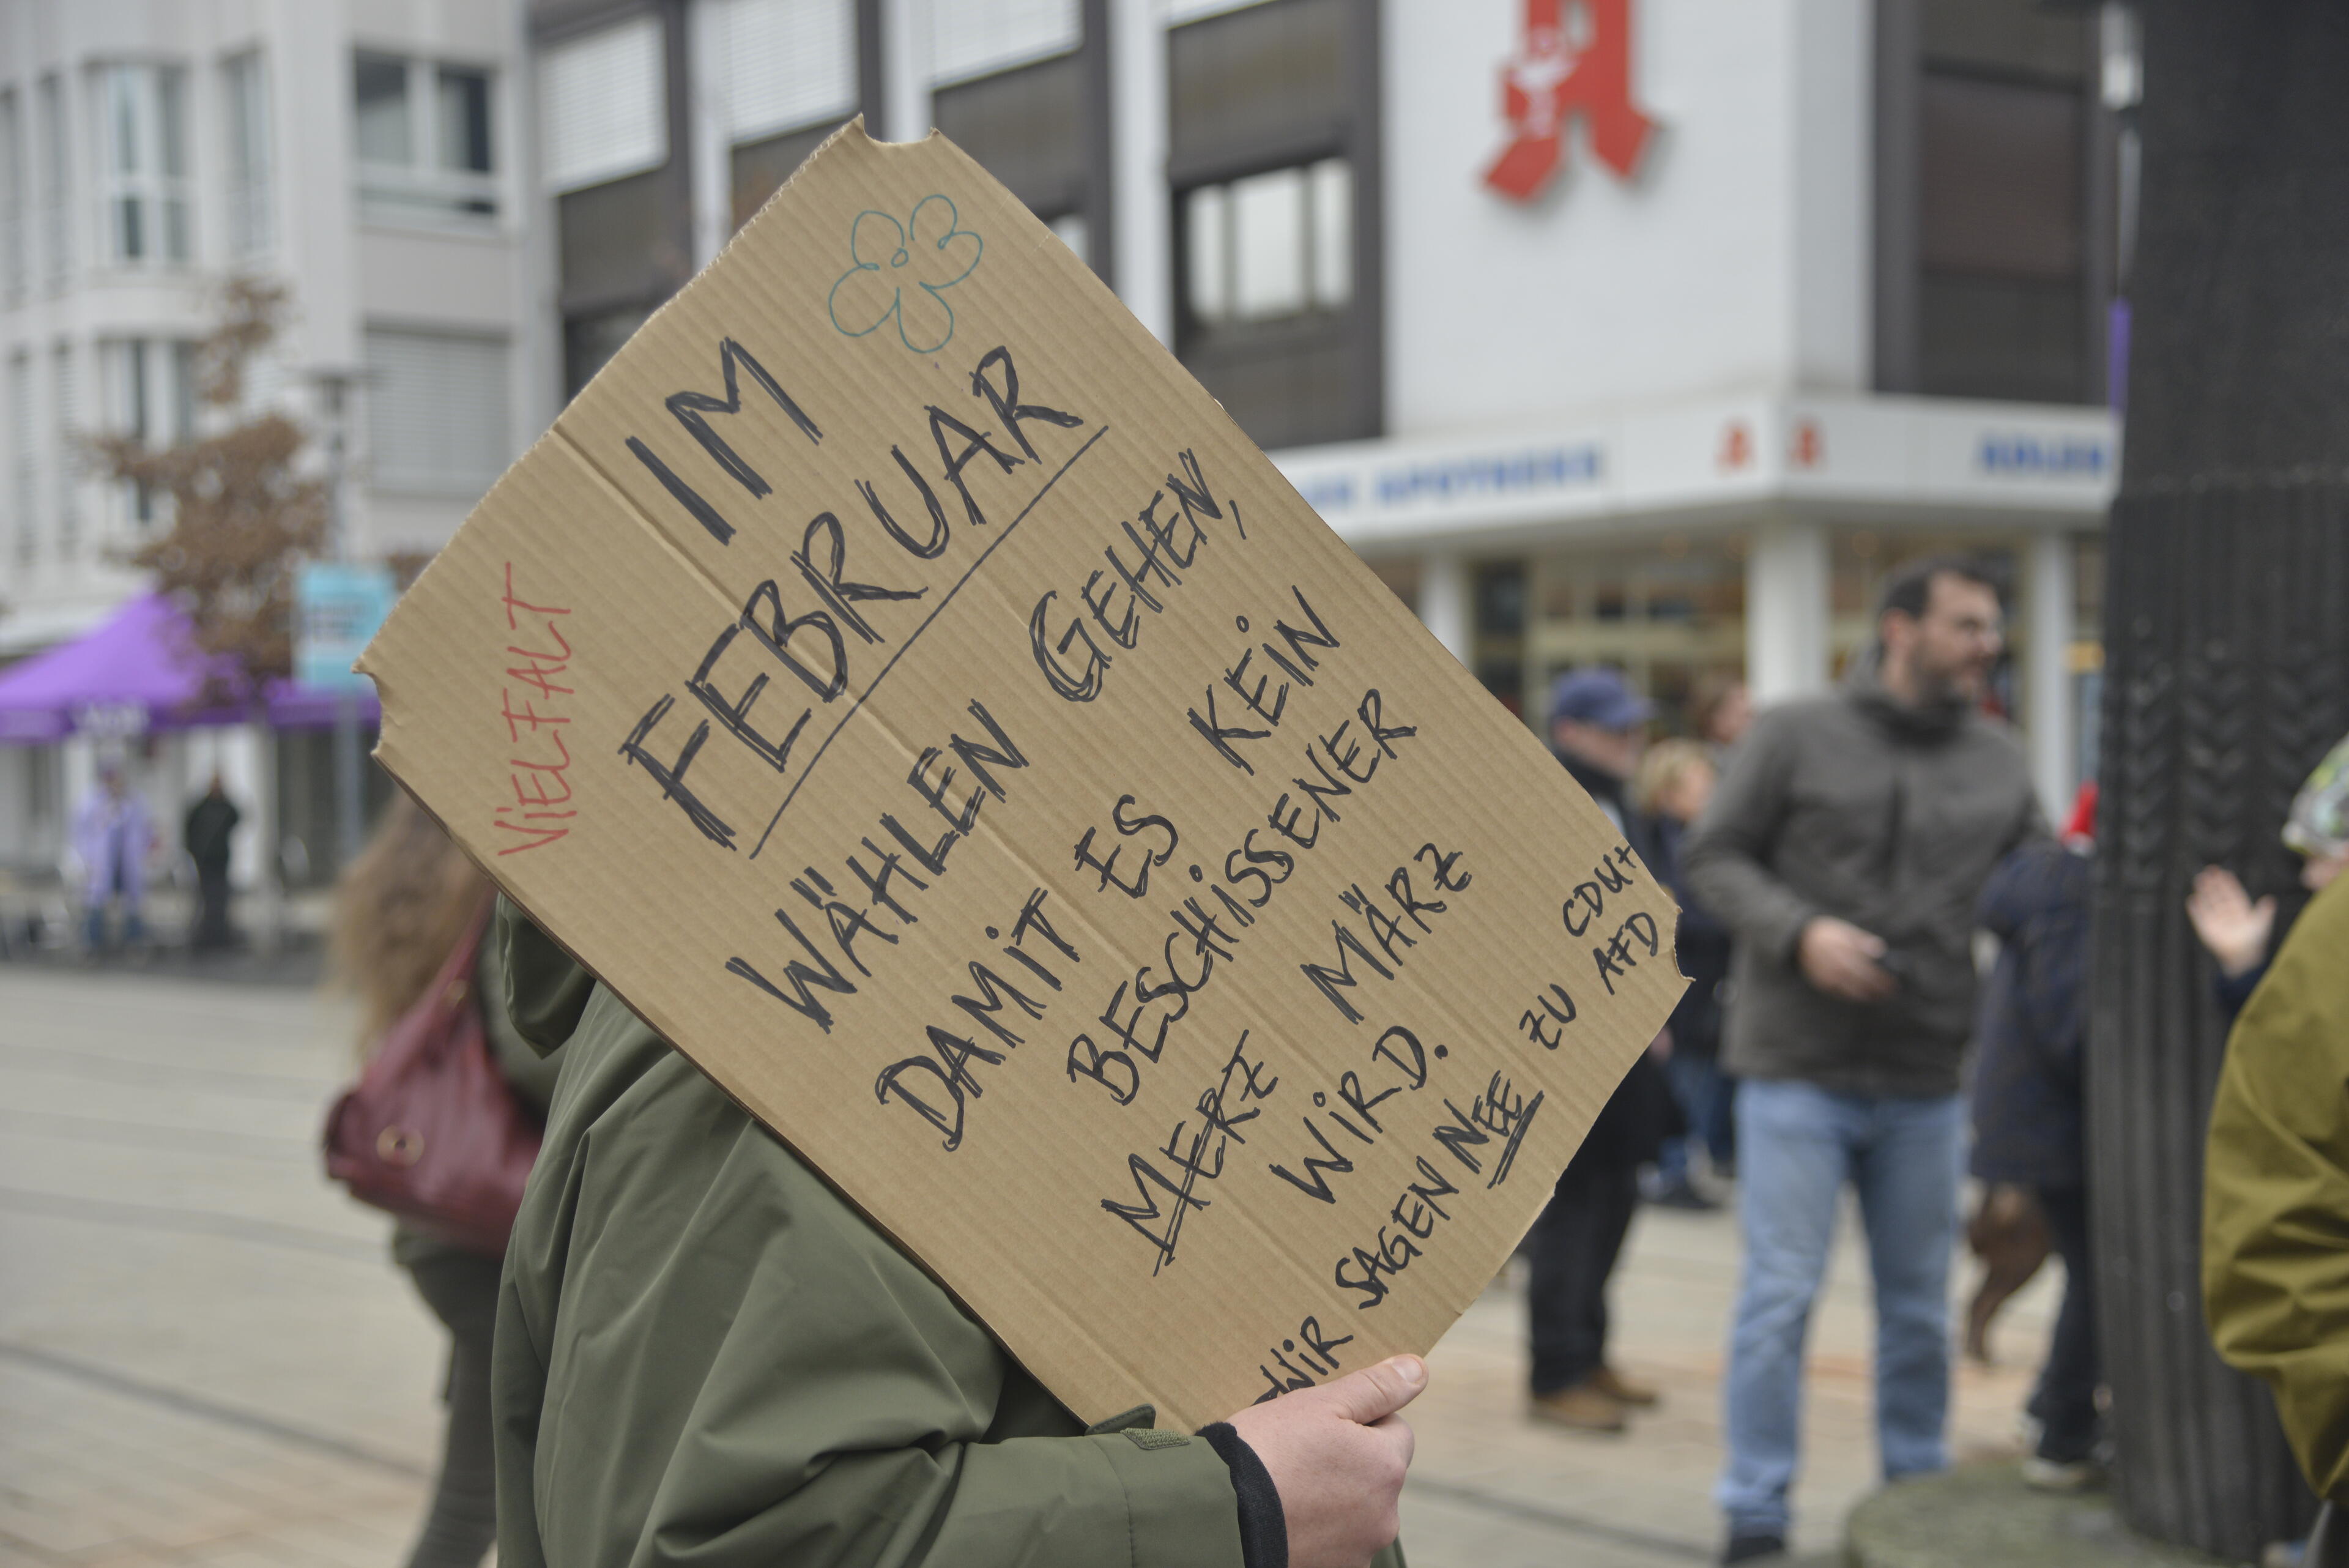 VIELFALT
IM
FEBRUAR
WÄHLEN GEHEN,
DAMIT ES KEIN
BESCHISSENER
MERZ MÄRZ
WIRD.
WIR SAGEN NEE ZU CDU+
AFD
APOTHEKE
ADLER